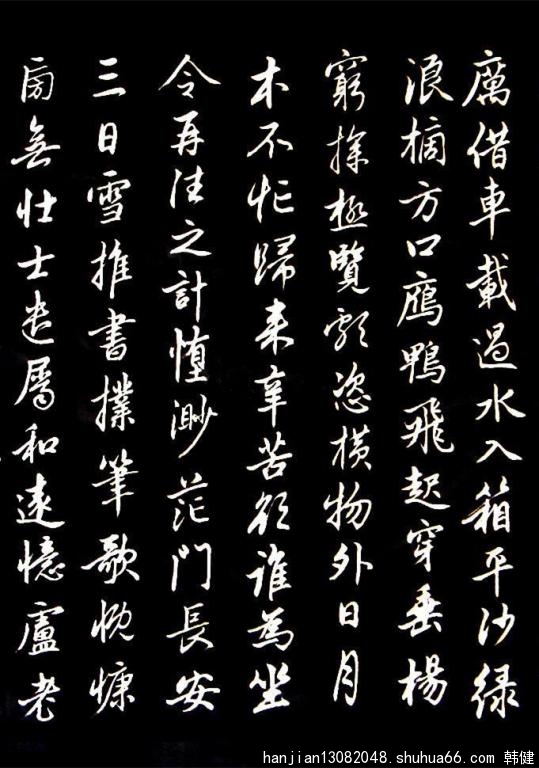 厲借車載過水入箱平沙緑
浪方口鴈鴨飛起穿垂楊
窮探極覽頗恣橫物外日月
本不忙歸來辛苦欲誰為坐
令再往之計渺茫門長安
三日雪推書撲筆歌慨慷
旁無壯士遣屬和遠憶盧老
hanjian13082048.shuhua66.com 韩健